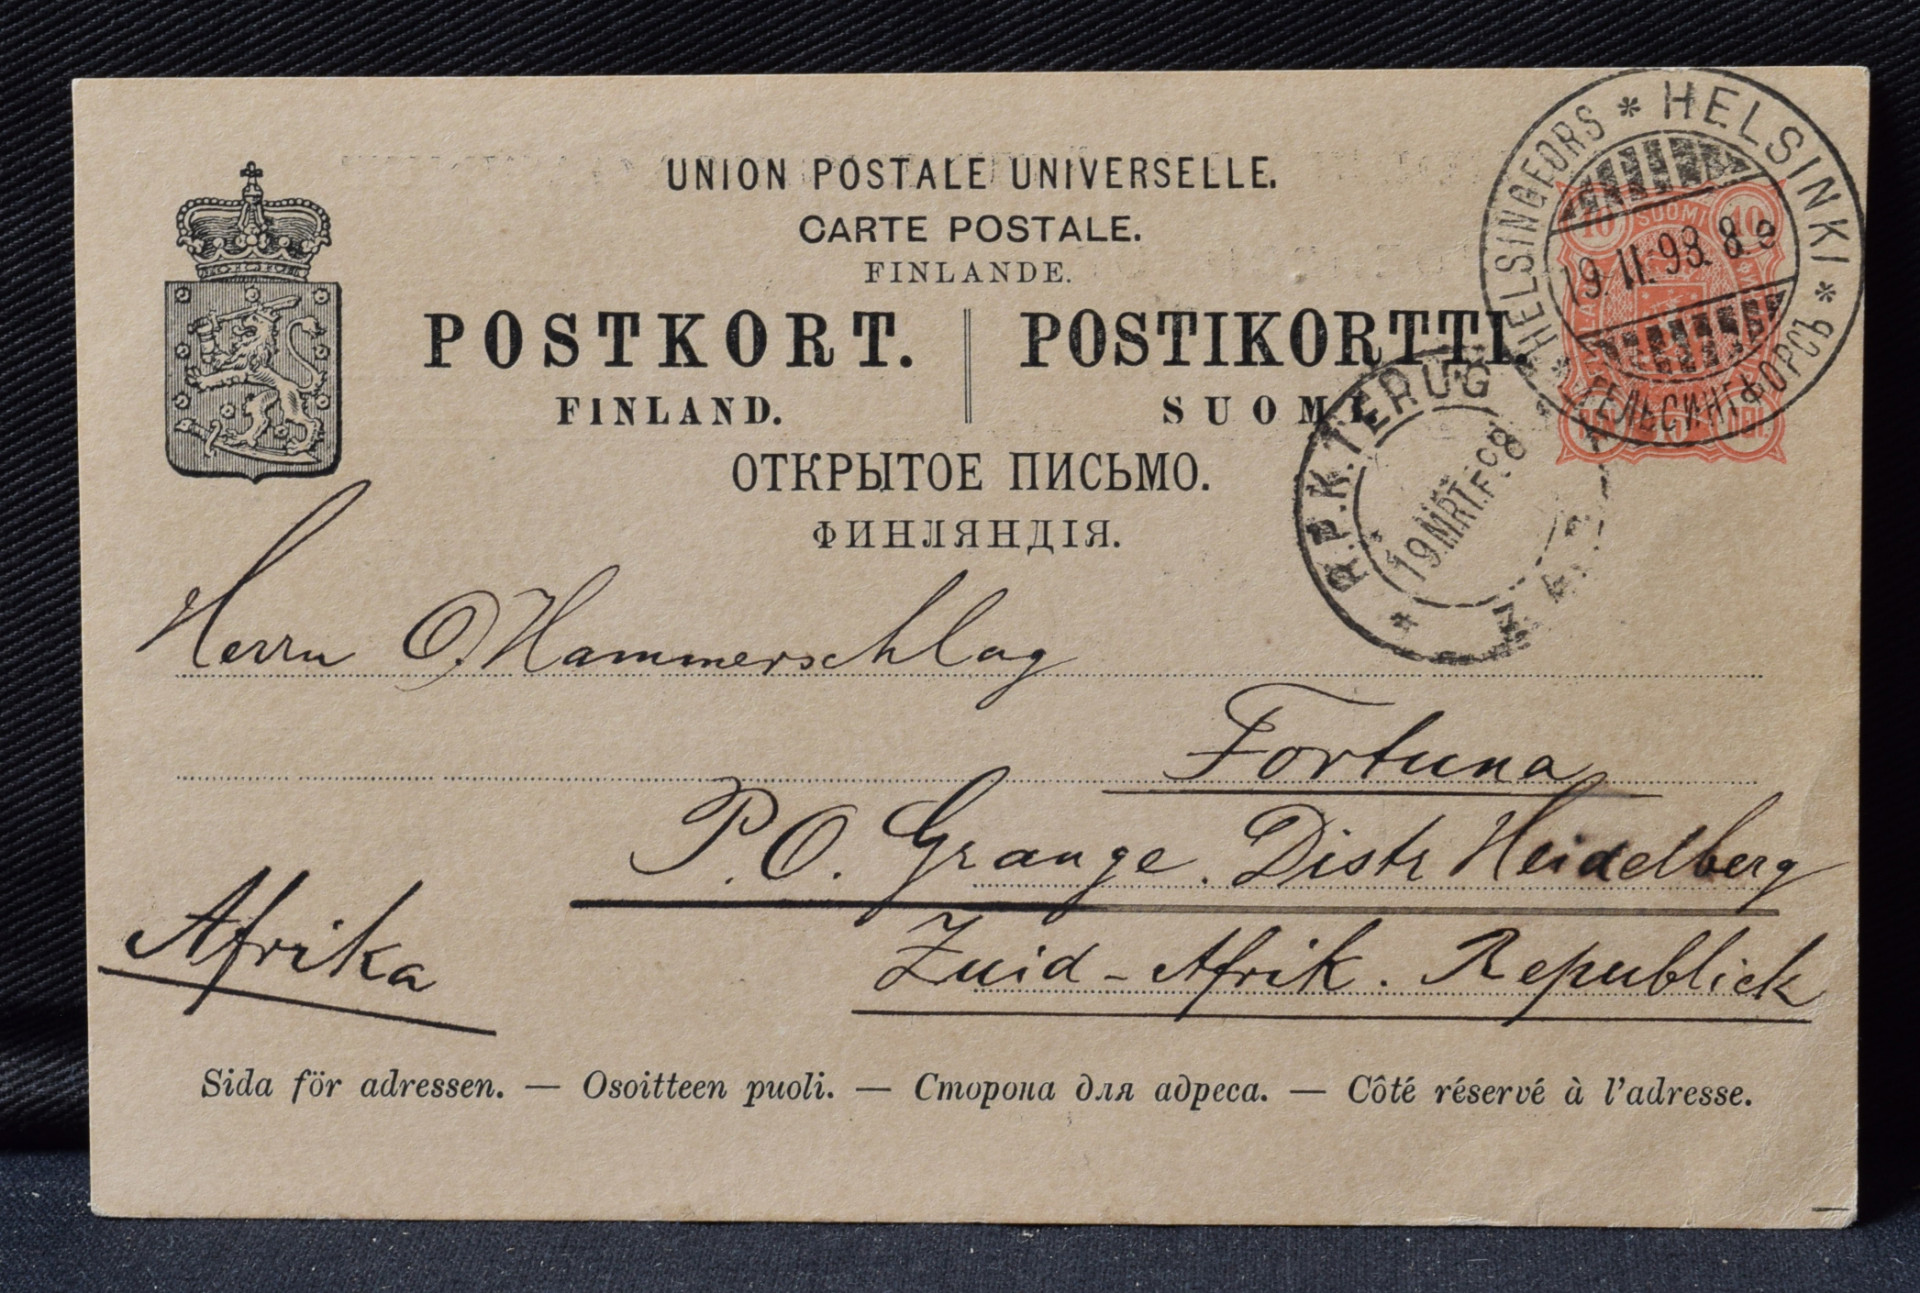 UNION POSTALE UNIVERSELLE.
CARTE POSTALE.
FINLANDE.
POSTKORT. POSTIKORTTI.
FINLAND. SUOMI.
ОТКРЫТОЕ ПИСЬМО.
ФИНЛЯНДІЯ.
* HELSINKI *
HELSINGFORS
ГЕЛЬСИНГФОРСЪ
10 SUOMI 10
19. II. 98. 8 e
R.P.K. TERUG
19 MRT.
Z.A.
Herrn O. Hammerschlag
Fortuna
P.O. Grange. Distr Heidelberg
Afrika
Zuid-Afrik. Republick
Sida för adressen. — Osoitteen puoli. — Сторона для адреса. — Côté réservé à l'adresse.